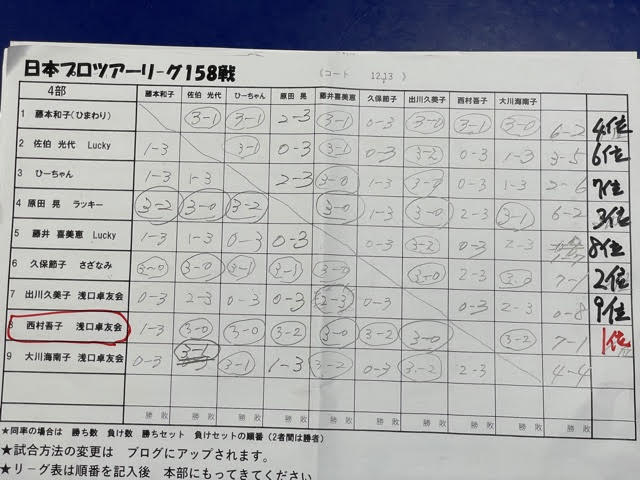 日本プロツアーリーグ158戦 (コート 12.13 )
4部 藤本和子 佐伯 光代 ひーちゃん 原田 晃 藤井喜美恵 久保節子 出川久美子 西村吾子 大川海南子
1 藤本和子(ひまわり) 3-1 3-1 2-3 3-1 0-3 3-0 3-1 3-0 6-2 4位
2 佐伯 光代 Lucky 1-3 3-1 0-3 3-1 0-3 3-2 0-3 1-3 3-5 6位
3 ひーちゃん 1-3 1-3 2-3 3-0 1-3 0-3 1-3 2-6 7位
4 原田 晃 ラッキー 3-2 3-0 3-2 3-0 1-3 3-0 2-3 3-1 6-2 3位
5 藤井 喜美恵 Lucky 1-3 1-3 0-3 0-3 0-3 3-2 0-3 2-3 8位
6 久保節子 さざなみ 3-0 3-0 3-1 3-1 3-0 3-0 2-3 7-1 2位
7 出川久美子 浅口卓友会 0-3 2-3 0-3 0-3 2-3 0-3 0-3 2-3 0-8 9位
8 西村吾子 浅口卓友会 1-3 3-0 3-0 3-2 3-0 3-2 3-0 3-2 7-1 1位
9 大川海南子 浅口卓友会 0-3 3-1 3-1 1-3 3-2 0-3 3-2 2-3 4-4
勝 敗 勝 敗 勝 敗 勝 敗 勝 敗 勝 敗 勝 敗 勝 敗 勝 敗 勝 敗
★同率の場合は 勝ち数 負け数 勝ちセット 負けセットの順番(2者間は勝者)
★試合方法の変更は ブログにアップされます。
★リーグ表は順番を記入後 本部にもってきてください